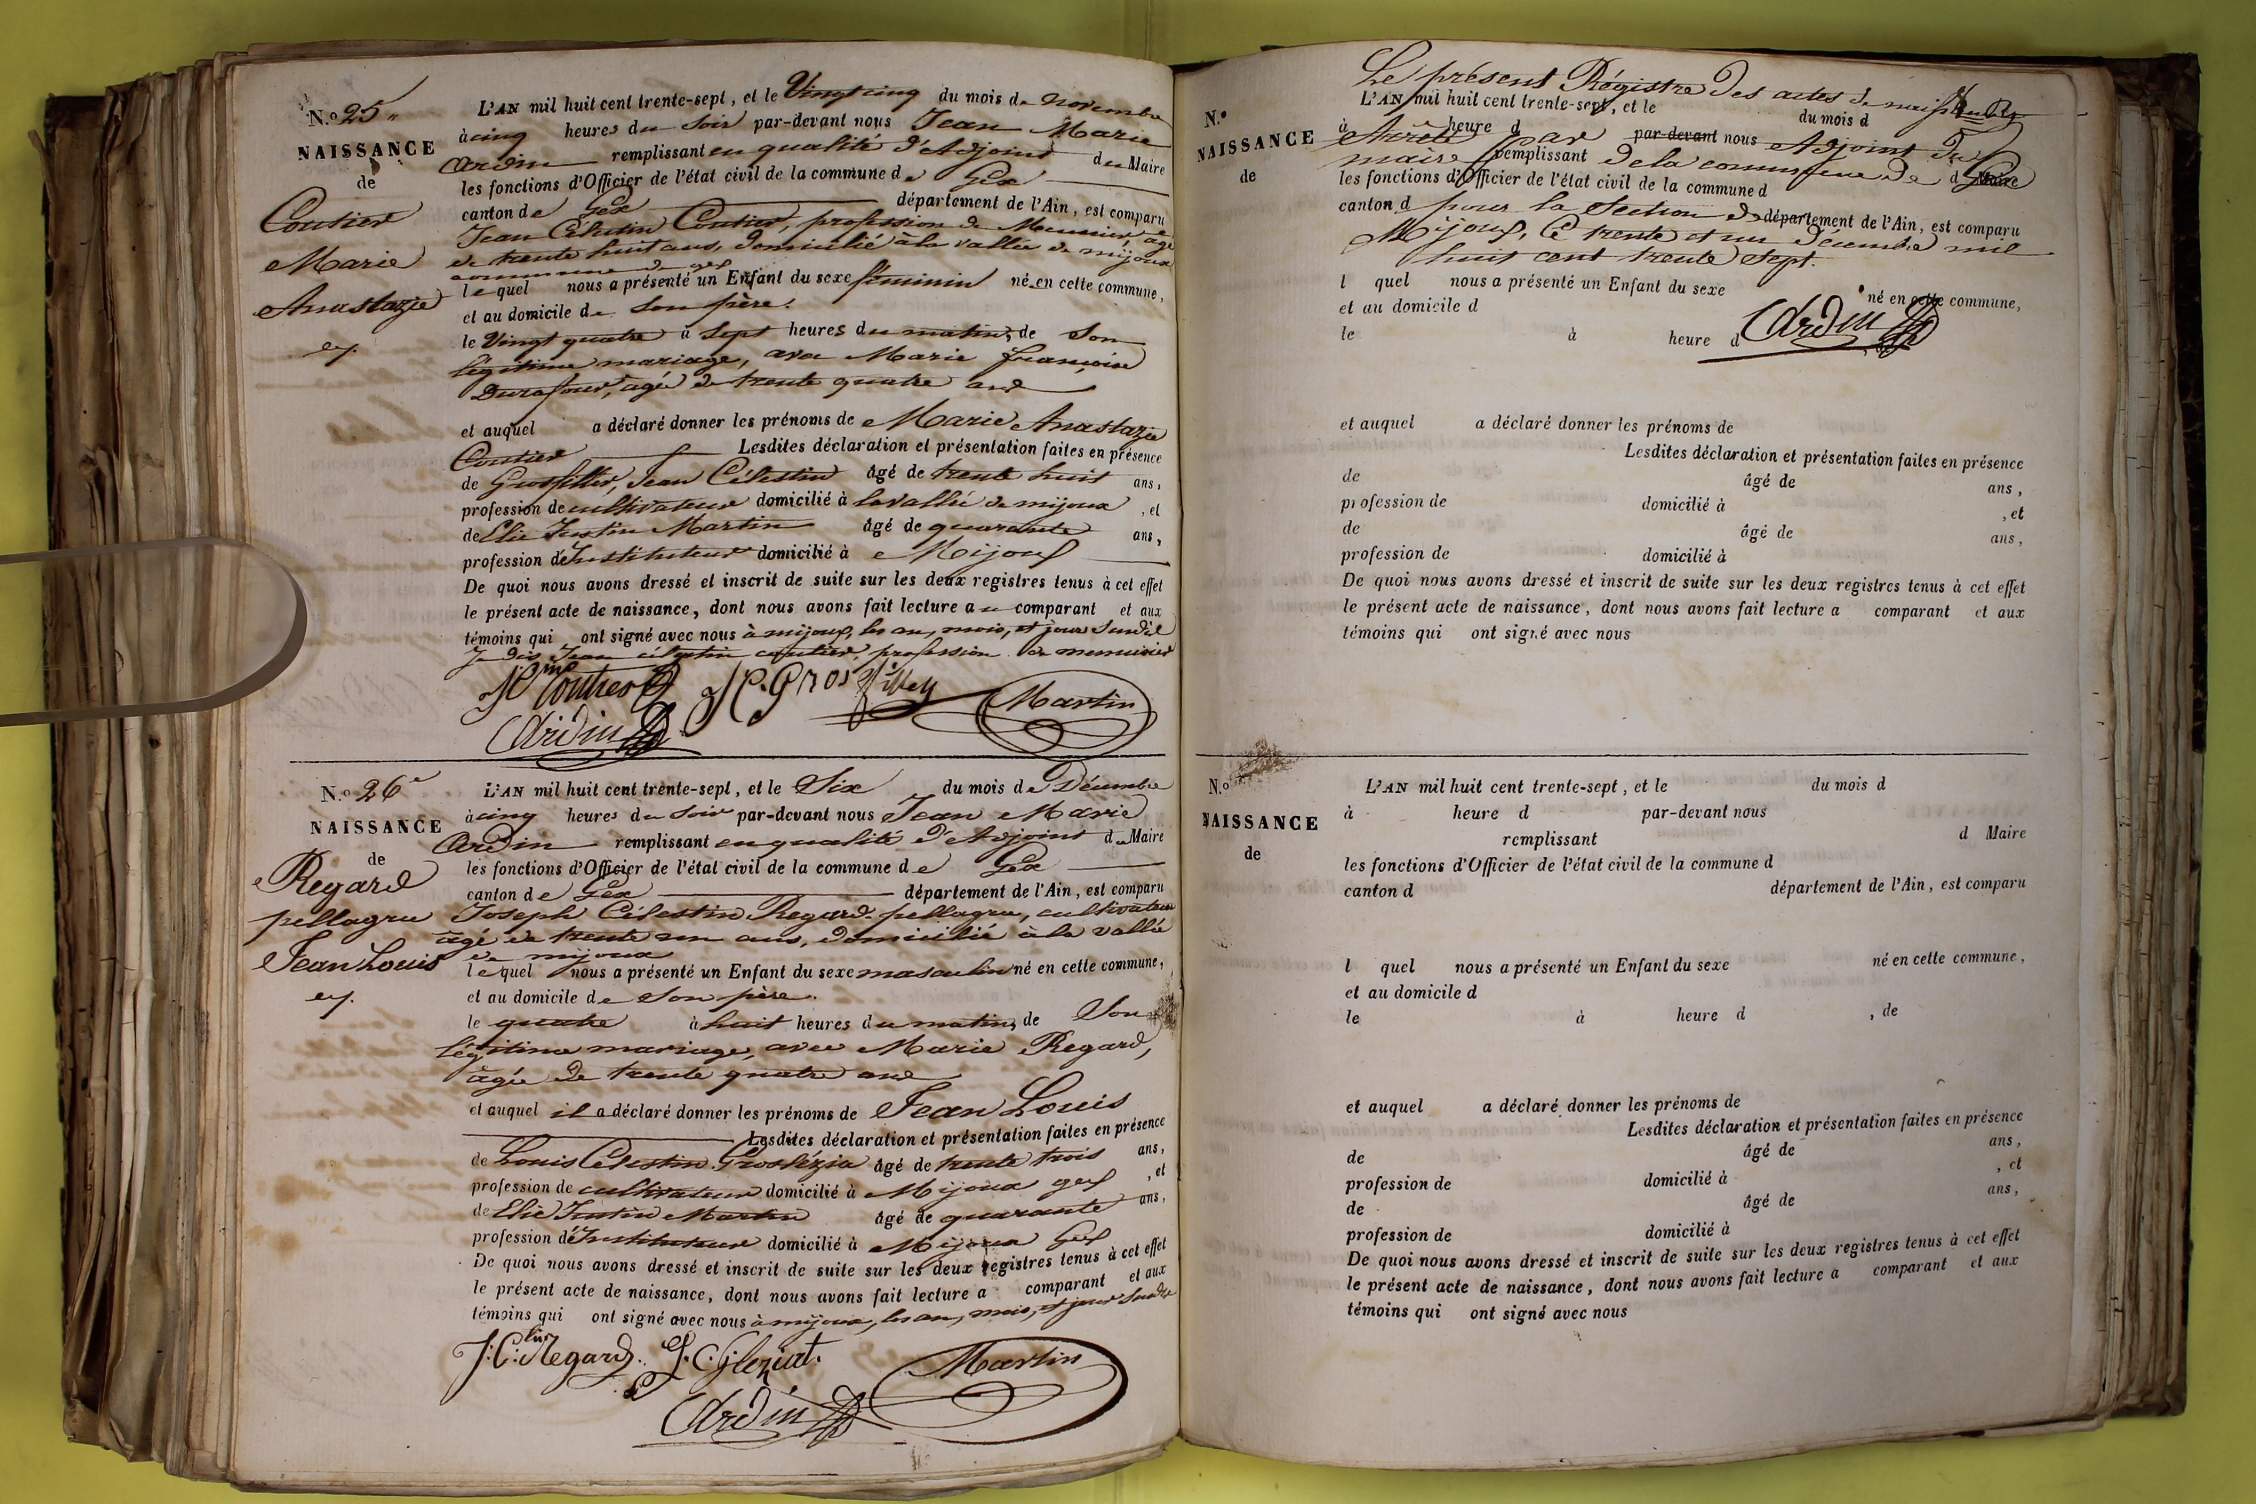 N.º 25
NAISSANCE
de
Coutier
Marie
Anastazie
L'AN mil huit cent trente-sept, et le Vingt cinq du mois de novembre
à cinq heures du Soir par-devant nous Jean Marie
Ardin remplissant en qualité d'Adjoint du Maire
les fonctions d'Officier de l'état civil de la commune de Gex
canton de Gex département de l'Ain, est comparu
Jean Célestin Coutier, profession de Menuisier, agé
de trente huit ans, domicilié à la vallée de mijoux
commune de gex
lequel nous a présenté un Enfant du sexe féminin né en cette commune,
et au domicile de son père.
le Vingt quatre à Sept heures du matin, de Son
légitime mariage, avec Marie françoise
Durafour, agée de trente quatre ans
et auquel a déclaré donner les prénoms de Marie Anastazie
Coutier Lesdites déclaration et présentation faites en présence
de Grosfilley, Jean Célestin âgé de trente huit ans,
profession de cultivateur domicilié à la vallée de mijoux, et
de Elie Justin Martin âgé de quarante ans,
profession d'Instituteur domicilié à Mijoux
De quoi nous avons dressé et inscrit de suite sur les deux registres tenus à cet effet
le présent acte de naissance, dont nous avons fait lecture au comparant et aux
témoins qui ont signé avec nous à mijoux, les an, mois, et jour Susdit
Je dis Jean célestin coutier profession de menuisier
Coutier J C. Grosfilley Martin
Ardin
N.º 26
NAISSANCE
de
Regard
pellagru
Jean Louis
L'AN mil huit cent trente-sept, et le Six du mois de Décembre
à cinq heures du Soir par-devant nous Jean Marie
Ardin remplissant en qualité d'Adjoint du Maire
les fonctions d'Officier de l'état civil de la commune de Gex
canton de Gex département de l'Ain, est comparu
Joseph Célestin Regard pellagru, cultivateur
âgé de trente un ans, domicilié à la vallée
de mijoux
lequel nous a présenté un Enfant du sexe masculin né en cette commune,
et au domicile de Son père.
le quatre à huit heures du matin, de Son
légitime mariage, avec Marie Regard,
âgée de trente quatre ans
et auquel il a déclaré donner les prénoms de Jean Louis
Lesdites déclaration et présentation faites en présence
de Louis Célestin âgé de trente trois ans,
profession de cultivateur domicilié à Mijoux gex, et
de Elie Justin Martin âgé de quarante ans,
profession d'Instituteur domicilié à Mijoux Gex
De quoi nous avons dressé et inscrit de suite sur les deux registres tenus à cet effet
le présent acte de naissance, dont nous avons fait lecture a comparant et aux
témoins qui ont signé avec nous à mijoux, les an, mois, et jour Susdit
J. C. Regard Martin
Ardin
Le présent Régistre des actes de naissances
N.º
NAISSANCE
de
L'AN mil huit cent trente-sept, et le du mois d
à heure d par-devant nous
Arrêté par Adjoint du
maire de la commune de Gex
remplissant d Maire
les fonctions d'Officier de l'état civil de la commune d
canton d département de l'Ain, est comparu
pour la Section de
Mijoux, le trente et un décembre mil
huit cent trente sept.
l quel nous a présenté un Enfant du sexe né en cette commune,
et au domicile d
le à heure d
Ardin
et auquel a déclaré donner les prénoms de
Lesdites déclaration et présentation faites en présence
de âgé de ans,
profession de domicilié à , et
de âgé de ans,
profession de domicilié à
De quoi nous avons dressé et inscrit de suite sur les deux registres tenus à cet effet
le présent acte de naissance, dont nous avons fait lecture a comparant et aux
témoins qui ont signé avec nous
N.º
NAISSANCE
de
L'AN mil huit cent trente-sept, et le du mois d
à heure d par-devant nous
remplissant d Maire
les fonctions d'Officier de l'état civil de la commune d
canton d département de l'Ain, est comparu
l quel nous a présenté un Enfant du sexe né en cette commune,
et au domicile d
le à heure d , de
et auquel a déclaré donner les prénoms de
Lesdites déclaration et présentation faites en présence
de âgé de ans,
profession de domicilié à , et
de âgé de ans,
profession de domicilié à
De quoi nous avons dressé et inscrit de suite sur les deux registres tenus à cet effet
le présent acte de naissance, dont nous avons fait lecture a comparant et aux
témoins qui ont signé avec nous